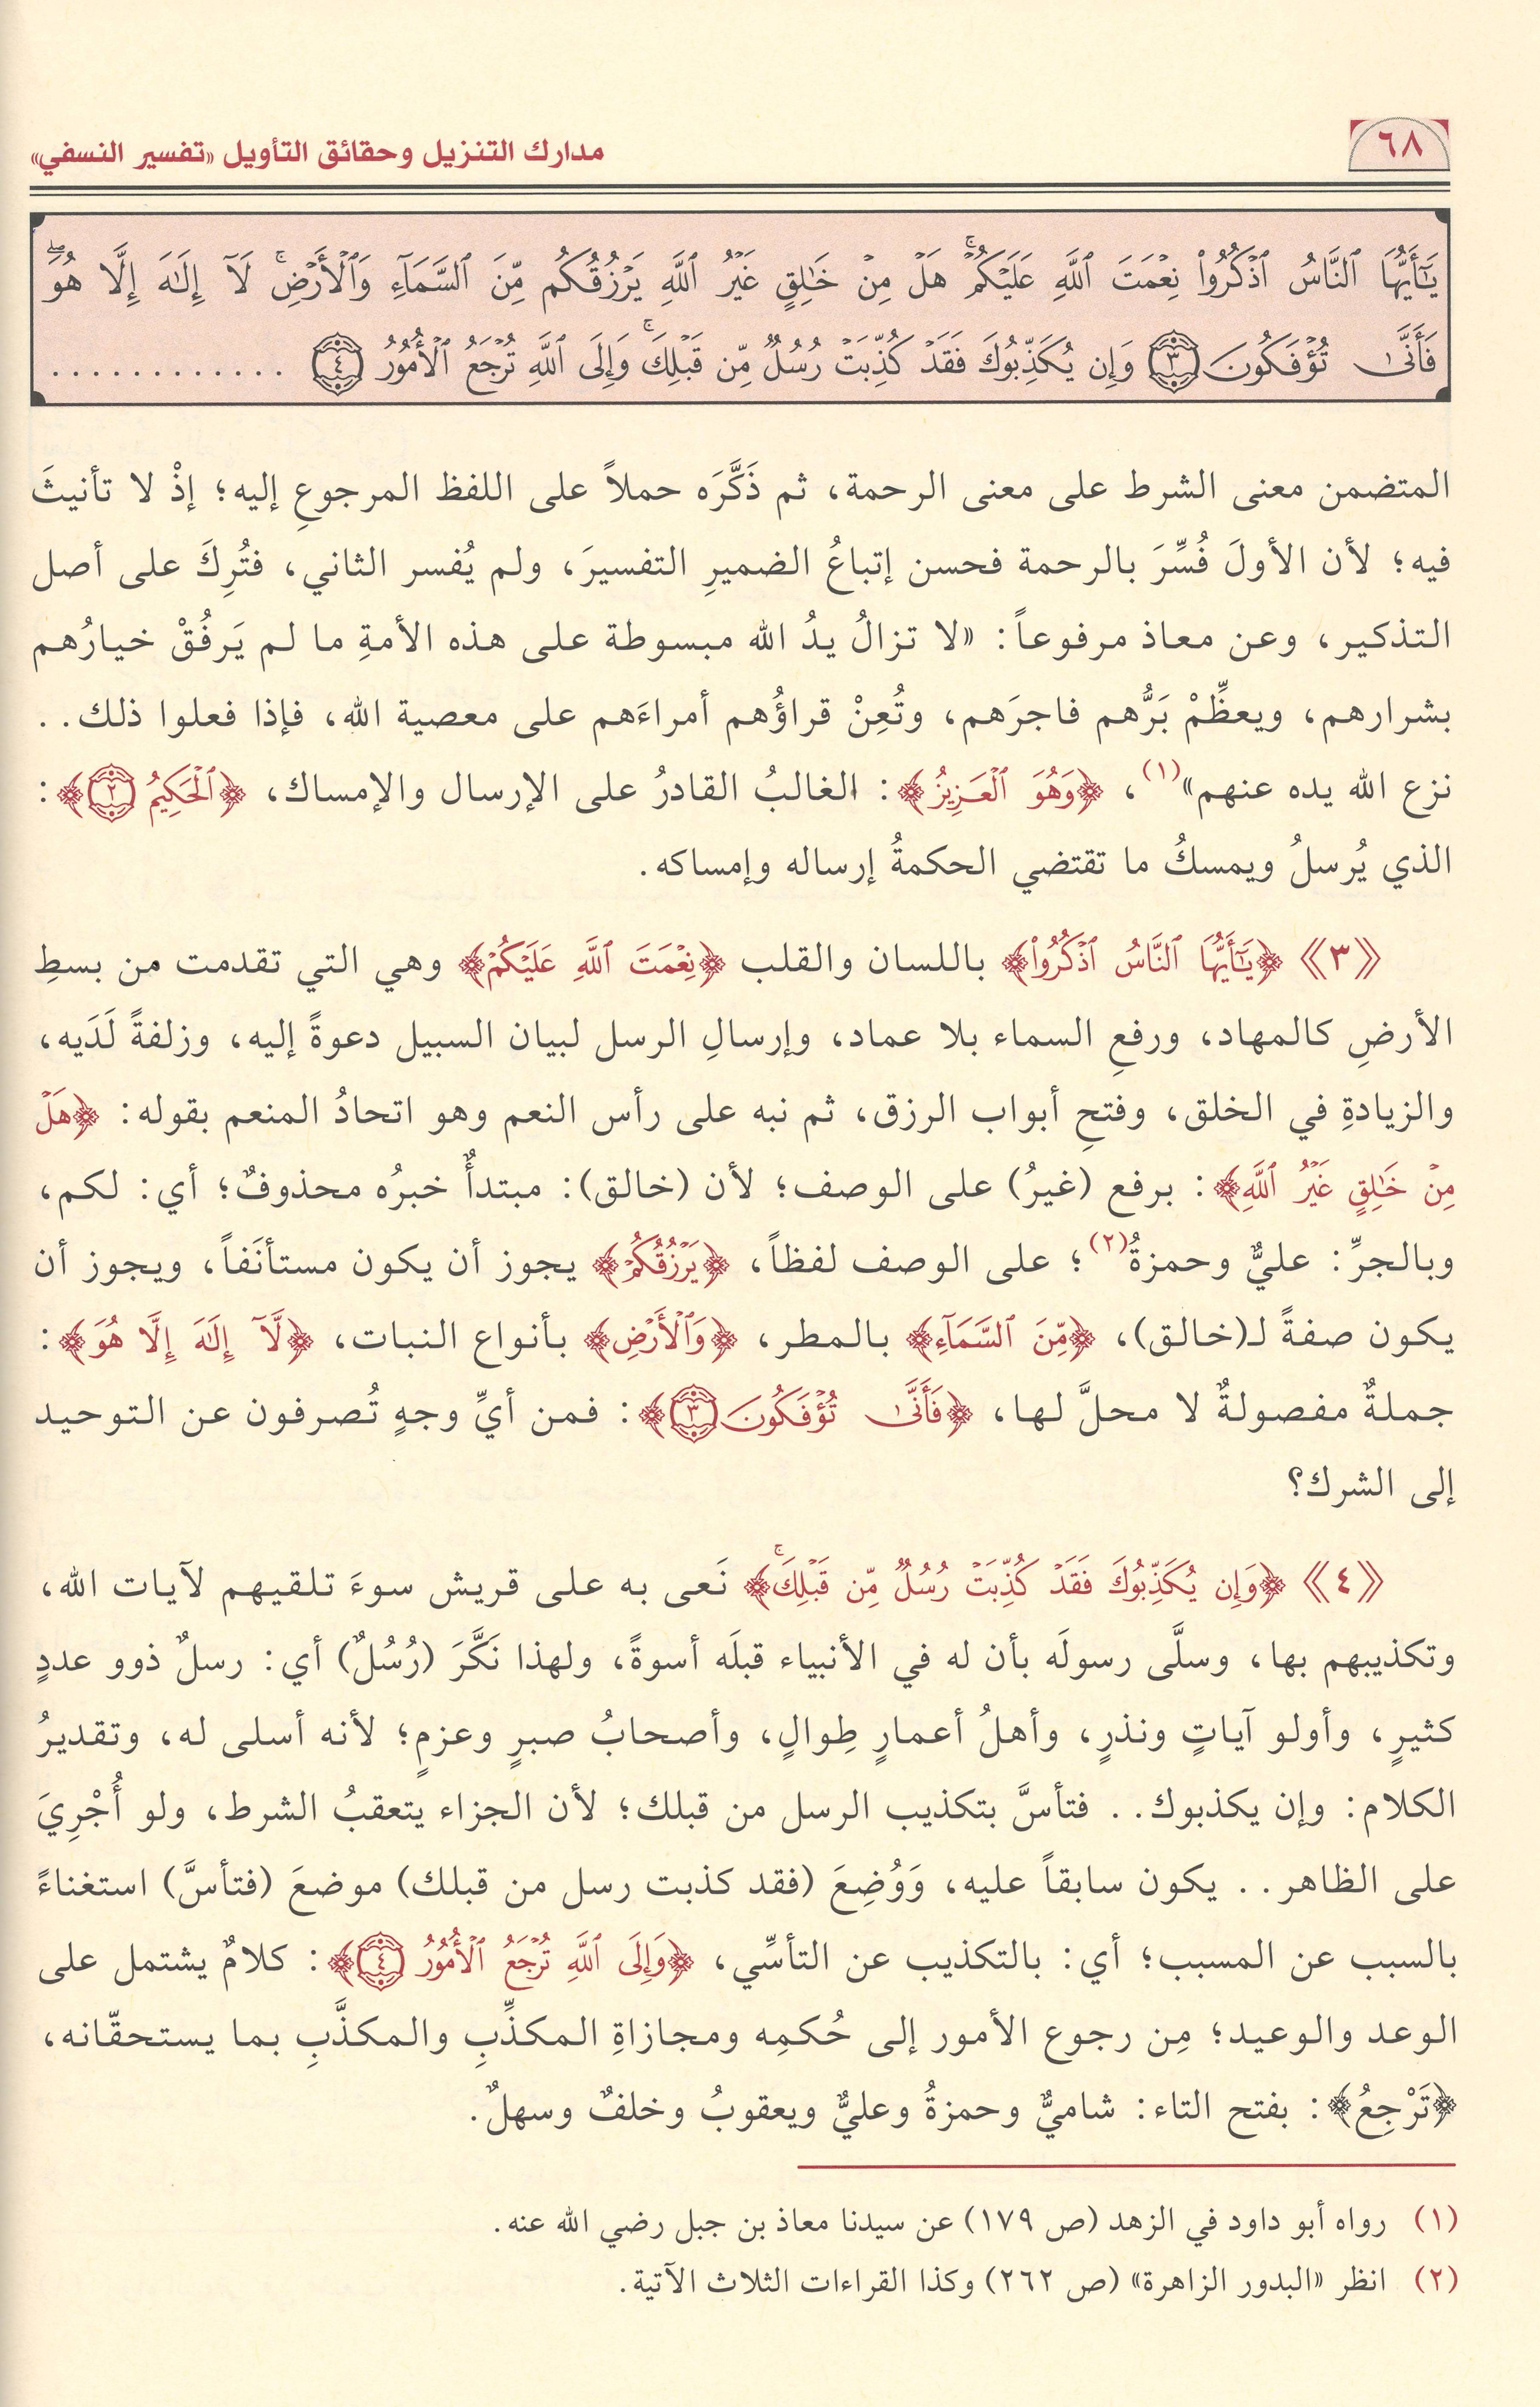 ٦٨
مدارك التنزيل وحقائق التأويل «تفسير النسفي»
يَٰٓأَيُّهَا ٱلنَّاسُ ٱذۡكُرُواْ نِعۡمَتَ ٱللَّهِ عَلَيۡكُمۡۚ هَلۡ مِنۡ خَٰلِقٍ غَيۡرُ ٱللَّهِ يَرۡزُقُكُم مِّنَ ٱلسَّمَآءِ وَٱلۡأَرۡضِۚ لَآ إِلَٰهَ إِلَّا هُوَۖ
فَأَنَّىٰ تُؤۡفَكُونَ ٣ وَإِن يُكَذِّبُوكَ فَقَدۡ كُذِّبَتۡ رُسُلٞ مِّن قَبۡلِكَۚ وَإِلَى ٱللَّهِ تُرۡجَعُ ٱلۡأُمُورُ ٤ .............
المتضمن معنى الشرط على معنى الرحمة، ثم ذَكَّرَه حملاً على اللفظ المرجوعِ إليه؛ إذْ لا تأنيثَ
فيه؛ لأن الأولَ فُسِّرَ بالرحمة فحسن إتباعُ الضميرِ التفسيرَ، ولم يُفسر الثاني، فتُرِكَ على أصل
التذكير، وعن معاذ مرفوعاً: «لا تزالُ يدُ الله مبسوطة على هذه الأمةِ ما لم يَرفُقْ خيارُهم
بشرارهم، ويعظِّمْ بَرُّهم فاجرَهم، وتُعِنْ قراؤُهم أمراءَهم على معصية الله، فإذا فعلوا ذلك..
نزع الله يده عنهم»(١)، ﴿وَهُوَ ٱلۡعَزِيزُ﴾: الغالبُ القادرُ على الإرسال والإمساك، ﴿ٱلۡحَكِيمُ ٢﴾:
الذي يُرسلُ ويمسكُ ما تقتضي الحكمةُ إرساله وإمساكه.
《٣》 ﴿يَٰٓأَيُّهَا ٱلنَّاسُ ٱذۡكُرُواْ﴾ باللسان والقلب ﴿نِعۡمَتَ ٱللَّهِ عَلَيۡكُمۡ﴾ وهي التي تقدمت من بسطِ
الأرضِ كالمهاد، ورفعِ السماء بلا عماد، وإرسالِ الرسل لبيان السبيل دعوةً إليه، وزلفةً لَدَيه،
والزيادةِ في الخلق، وفتحِ أبواب الرزق، ثم نبه على رأس النعم وهو اتحادُ المنعم بقوله: ﴿هَلۡ
مِنۡ خَٰلِقٍ غَيۡرُ ٱللَّهِ﴾: برفع (غيرُ) على الوصف؛ لأن (خالق): مبتدأٌ خبرُه محذوفٌ؛ أي: لكم،
وبالجرِّ: عليٌّ وحمزةُ(٢)؛ على الوصف لفظاً، ﴿يَرۡزُقُكُمۡ﴾ يجوز أن يكون مستأنَفاً، ويجوز أن
يكون صفةً لـ(خالق)، ﴿مِّنَ ٱلسَّمَآءِ﴾ بالمطر، ﴿وَٱلۡأَرۡضِ﴾ بأنواع النبات، ﴿لَّآ إِلَٰهَ إِلَّا هُوَ﴾:
جملةٌ مفصولةٌ لا محلَّ لها، ﴿فَأَنَّىٰ تُؤۡفَكُونَ ٣﴾: فمن أيِّ وجهٍ تُصرفون عن التوحيد
إلى الشرك؟
《٤》 ﴿وَإِن يُكَذِّبُوكَ فَقَدۡ كُذِّبَتۡ رُسُلٞ مِّن قَبۡلِكَۚ﴾ نَعى به على قريش سوءَ تلقيهم لآيات الله،
وتكذيبهم بها، وسلَّى رسولَه بأن له في الأنبياء قبلَه أسوةً، ولهذا نَكَّرَ (رُسُلٌ) أي: رسلٌ ذوو عددٍ
كثيرٍ، وأولو آياتٍ ونذرٍ، وأهلُ أعمارٍ طِوالٍ، وأصحابُ صبرٍ وعزمٍ؛ لأنه أسلى له، وتقديرُ
الكلام: وإن يكذبوك.. فتأسَّ بتكذيب الرسل من قبلك؛ لأن الجزاء يتعقبُ الشرط، ولو أُجْرِيَ
على الظاهر.. يكون سابقاً عليه، وَوُضِعَ (فقد كذبت رسل من قبلك) موضعَ (فتأسَّ) استغناءً
بالسبب عن المسبب؛ أي: بالتكذيب عن التأسِّي، ﴿وَإِلَى ٱللَّهِ تُرۡجَعُ ٱلۡأُمُورُ ٤﴾: كلامٌ يشتمل على
الوعد والوعيد؛ مِن رجوع الأمور إلى حُكمِه ومجازاةِ المكذِّبِ والمكذَّبِ بما يستحقّانه،
﴿تَرْجِعُ﴾: بفتح التاء: شاميٌّ وحمزةُ وعليٌّ ويعقوبُ وخلفٌ وسهلٌ.
(١) رواه أبو داود في الزهد (ص ١٧٩) عن سيدنا معاذ بن جبل رضي الله عنه.
(٢) انظر «البدور الزاهرة» (ص ٢٦٢) وكذا القراءات الثلاث الآتية.